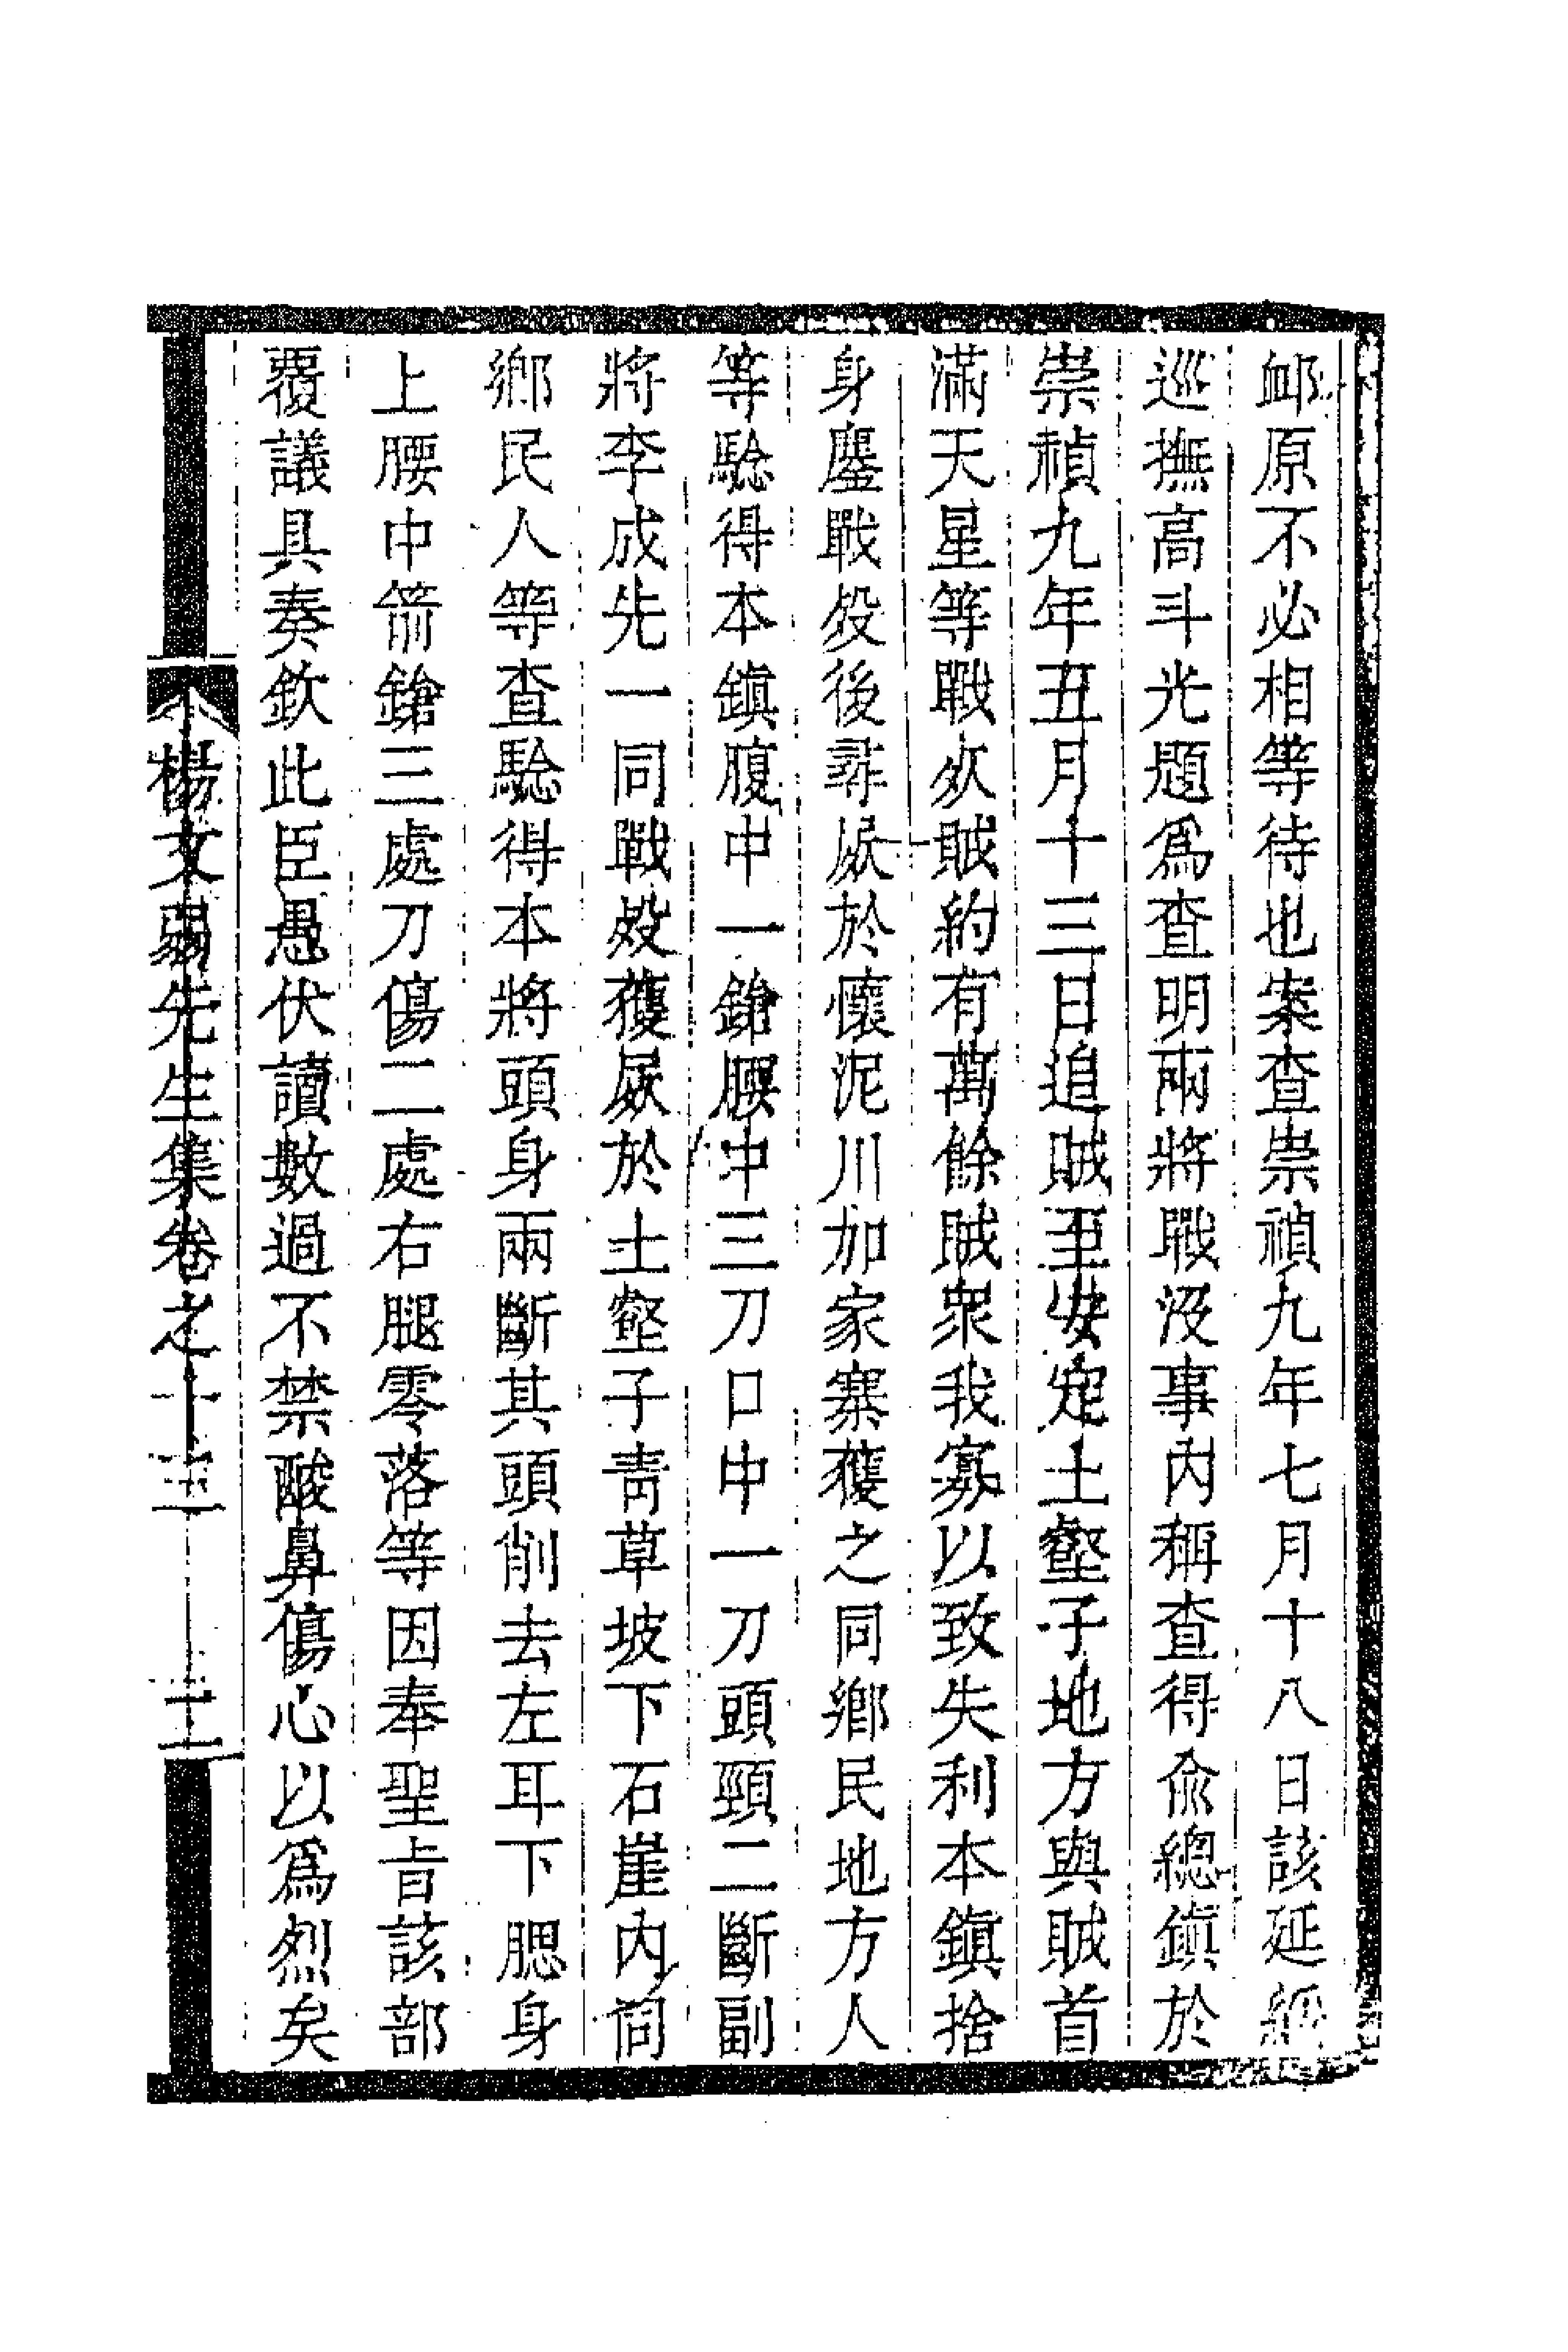 卹原不必相等待也案查崇禎九年七月十八日該延綏
巡撫高斗光題為查明兩將戰沒事內稱查得俞總鎮於
崇禎九年五月十三日追賊至安定土壑子地方與賊首
滿天星等戰次賊約有萬餘賊衆我寡以致失利本鎮捨
身鏖戰歿後尋屍於懷泥川加家寨獲之同鄉民地方人
等驗得本鎮腹中一鎗腰中三刀口中一刀頭頸二斷副
將李成先一同戰歿獲屍於土壑子青草坡下石崖內伺
鄉民人等查驗得本將頭身兩斷其頭削去左耳下腮身
上腰中箭鎗三處刀傷二處右腿零落等因奉聖旨該部
覆議具奏欽此臣愚伏讀數過不禁酸鼻傷心以為烈矣
楊文弱先生集卷之十三 二